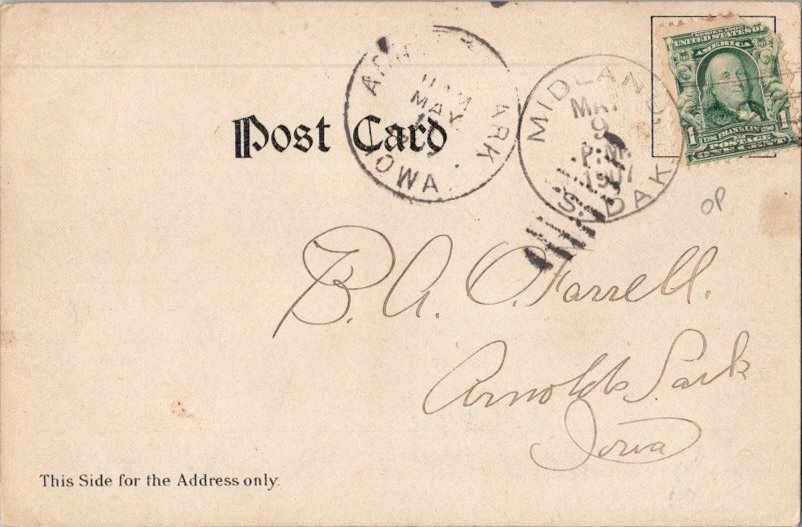 SERIES 1902
UNITED STATES OF
AMERICA
1706 FRANKLIN 1790
1 POSTAGE 1
ONE CENT
Post Card
ARK
IOWA
11 AM
MAY
MIDLAND,
MAY
9
P.M.
1907
S. DAK.
OP
B. A. O. Farrell.
Arnolds Park
Iowa
This Side for the Address only.